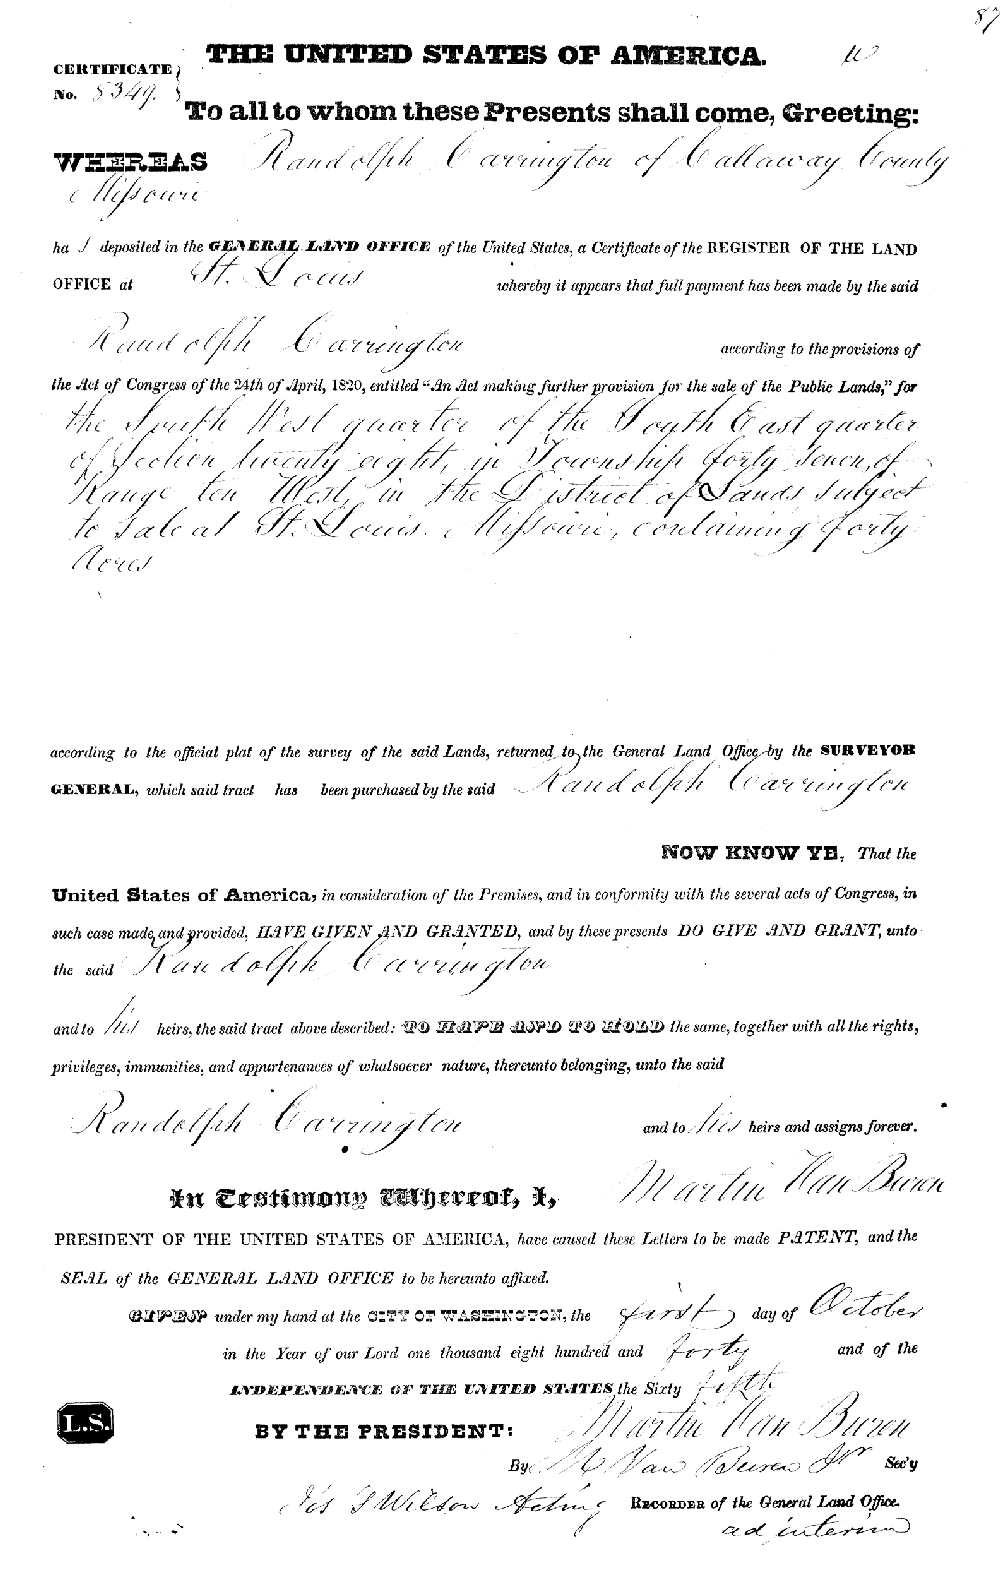 87
THE UNITED STATES OF AMERICA.
CERTIFICATE
No. 8349.
To all to whom these Presents shall come, Greeting:
WHEREAS Randolph Carrington of Callaway County
Missouri
ha s deposited in the GENERAL LAND OFFICE of the United States, a Certificate of the REGISTER OF THE LAND
OFFICE at St. Louis whereby it appears that full payment has been made by the said
Randolph Carrington according to the provisions of
the Act of Congress of the 24th of April, 1820, entitled “An Act making further provision for the sale of the Public Lands,” for
the South West quarter of the South East quarter
of Section twenty eight, in Township forty seven, of
Range ten West, in the District of Lands subject
to sale at St. Louis. Missouri, containing forty
Acres
according to the official plat of the survey of the said Lands, returned to the General Land Office by the SURVEYOR
GENERAL, which said tract has been purchased by the said Randolph Carrington
NOW KNOW YE, That the
United States of America, in consideration of the Premises, and in conformity with the several acts of Congress, in
such case made and provided, HAVE GIVEN AND GRANTED, and by these presents DO GIVE AND GRANT, unto
the said Randolph Carrington
and to his heirs, the said tract above described: TO HAVE AND TO HOLD the same, together with all the rights,
privileges, immunities, and appurtenances of whatsoever nature, thereunto belonging, unto the said
Randolph Carrington and to his heirs and assigns forever.
In Testimony Whereof, I, Martin Van Buren
PRESIDENT OF THE UNITED STATES OF AMERICA, have caused these Letters to be made PATENT, and the
SEAL of the GENERAL LAND OFFICE to be hereunto affixed.
GIVEN under my hand at the CITY OF WASHINGTON, the first day of October
in the Year of our Lord one thousand eight hundred and forty and of the
INDEPENDENCE OF THE UNITED STATES the Sixty fifth
L.S.
BY THE PRESIDENT: Martin Van Buren
By M Van Buren Jr Sec'y
Jos S Wilson Acting RECORDER of the General Land Office.
ad interim